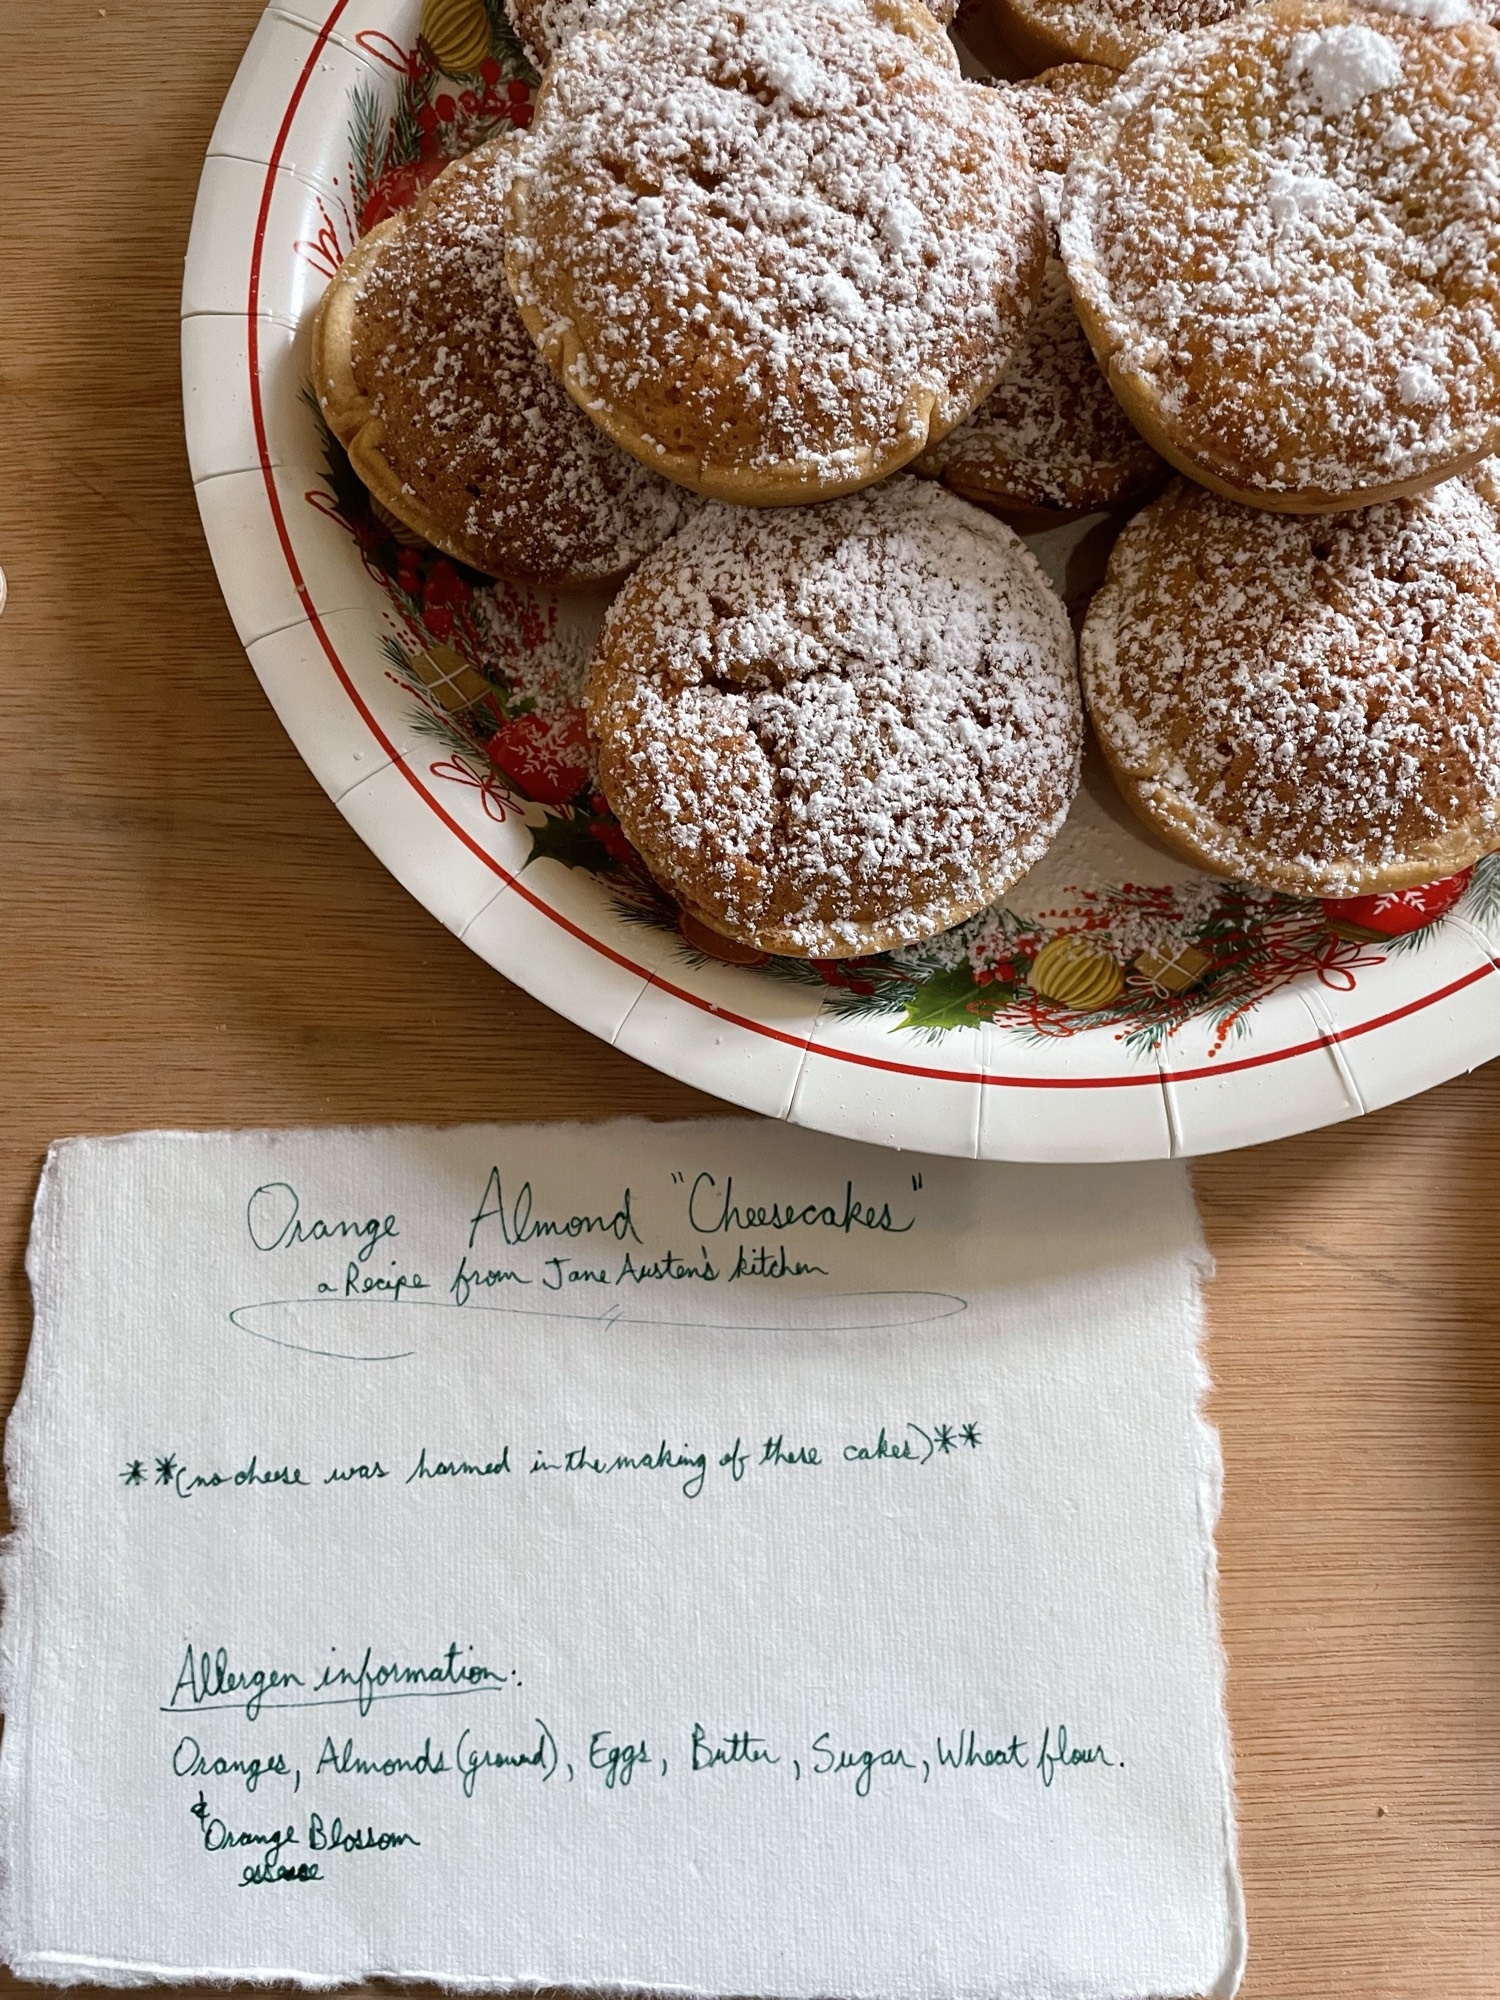 Orange Almond "Cheesecakes"
a Recipe from Jane Austen's kitchen
**(no cheese was harmed in the making of these cakes)**
Allergen information:
Oranges, Almonds (ground), Eggs, Butter, Sugar, Wheat flour.
& Orange Blossom
essence